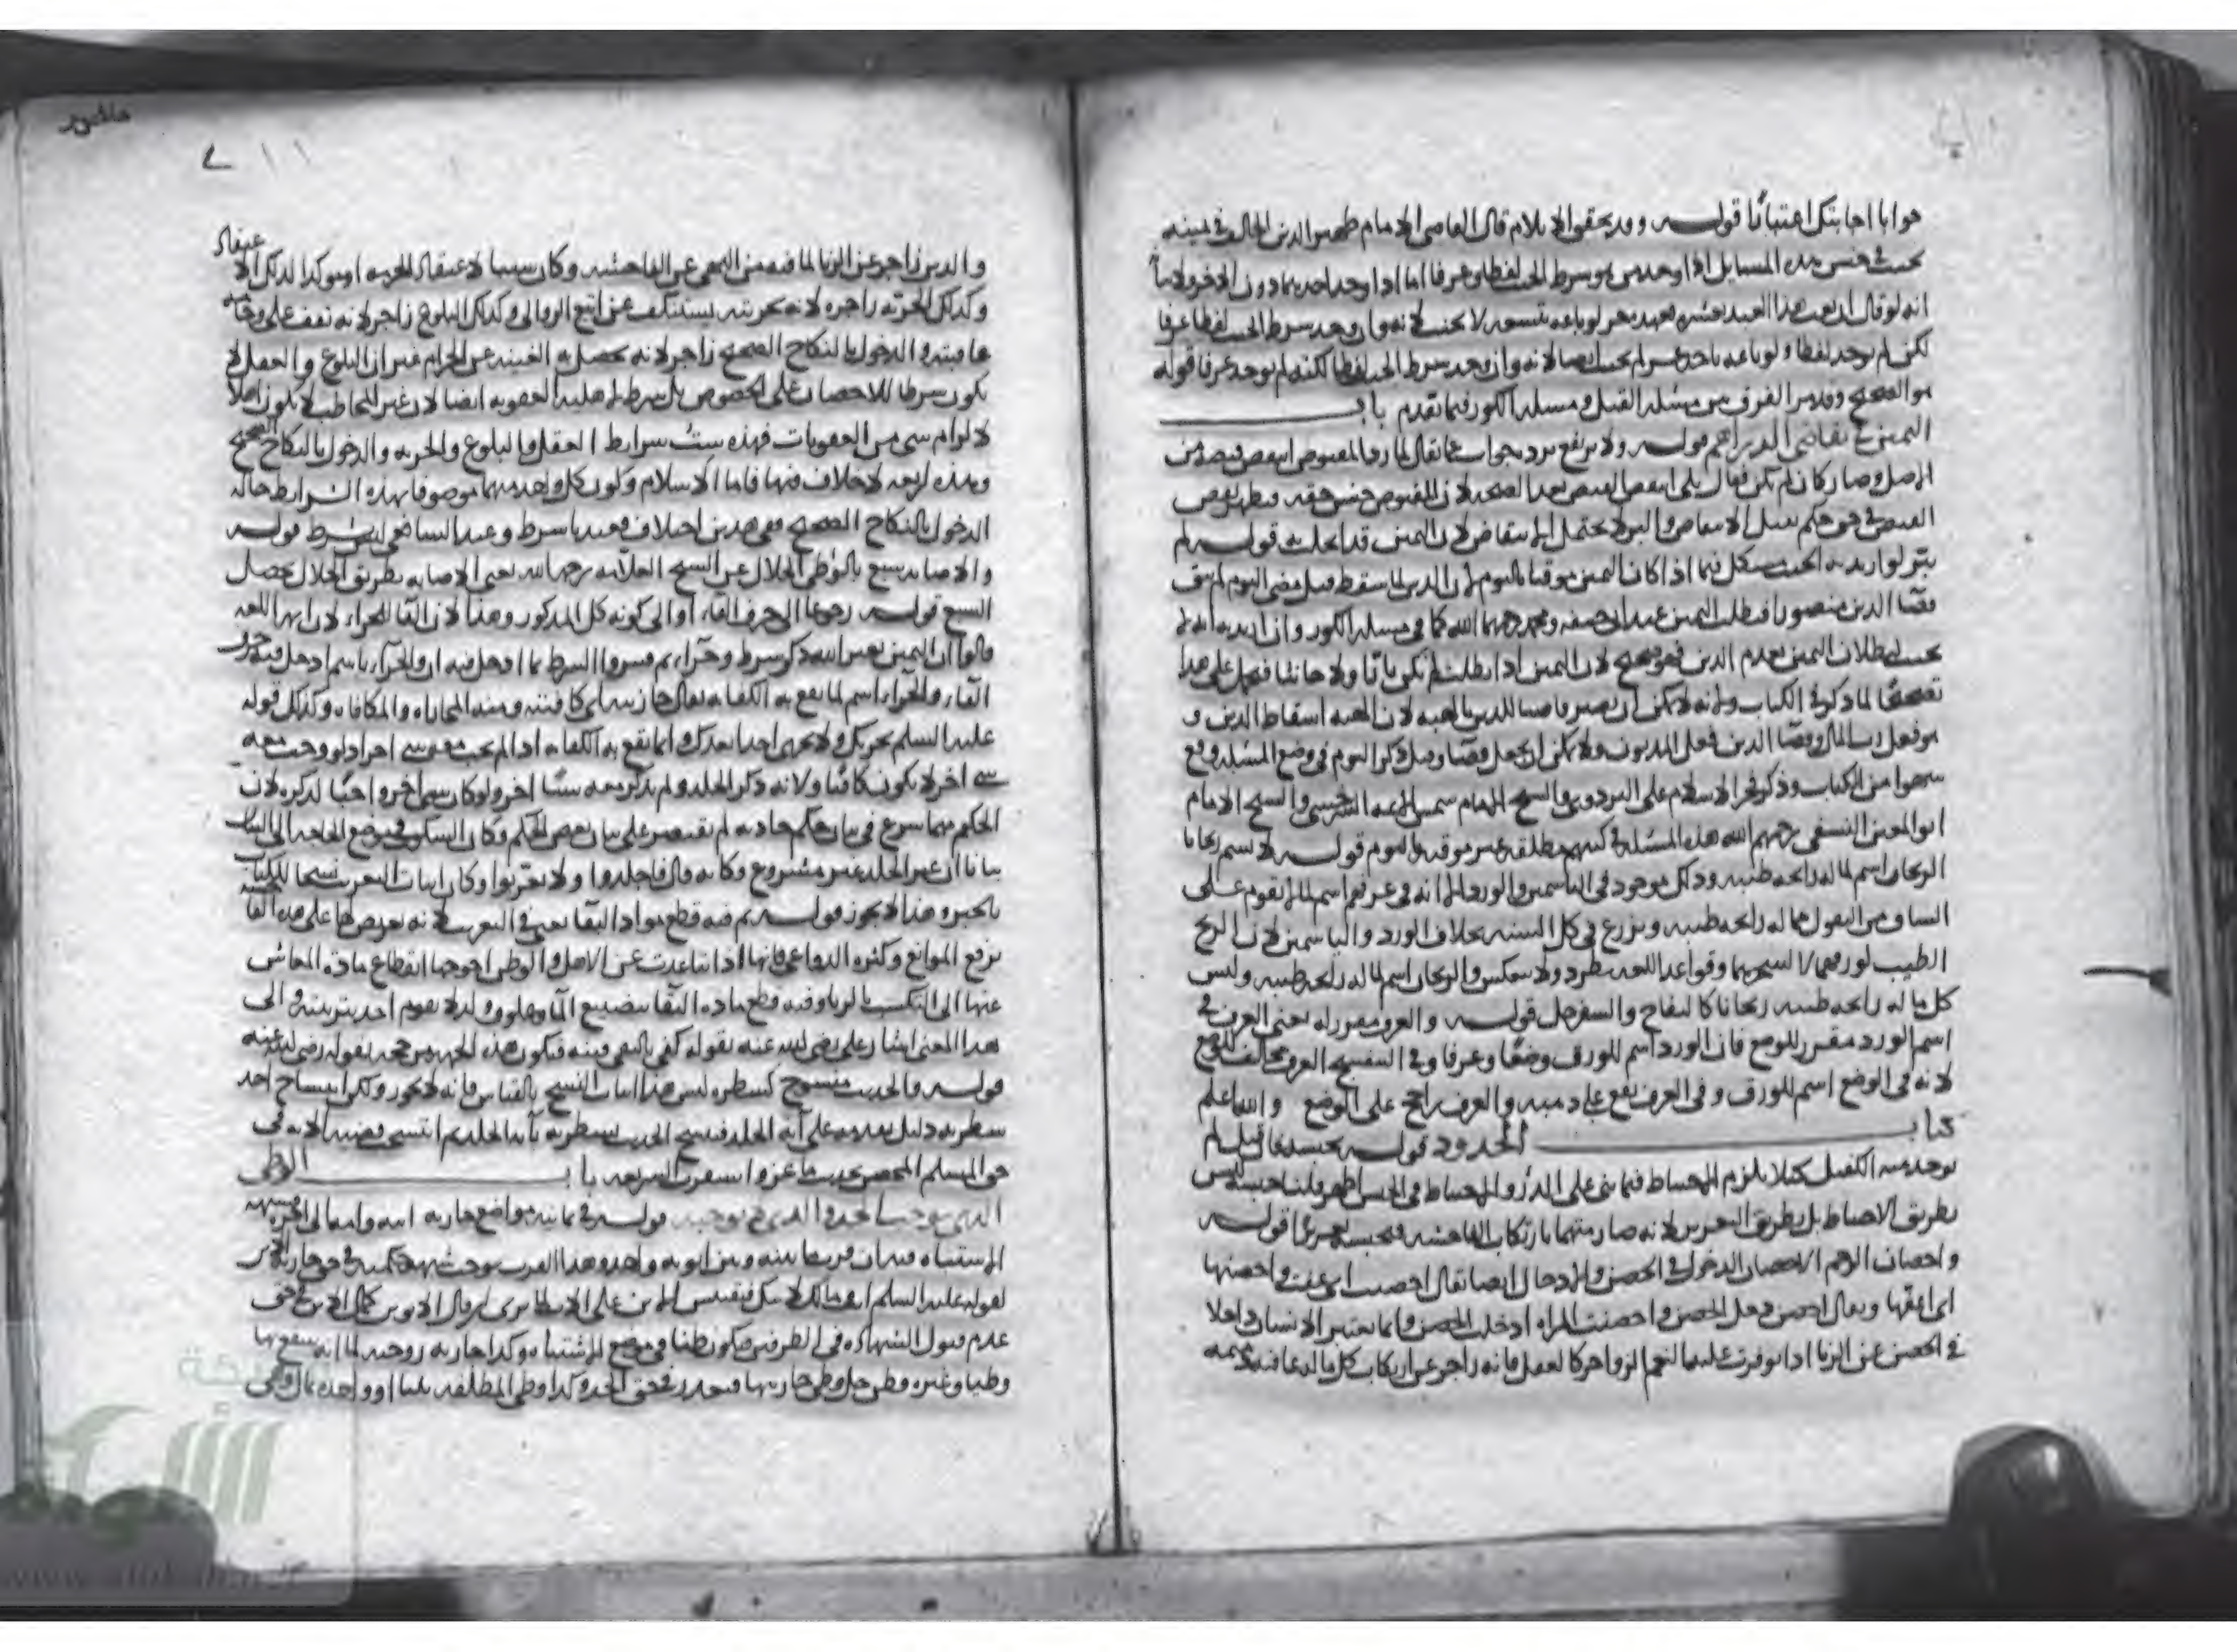 جوابا اجابتك اعتبارا قوله وقد تحقق الايلام قال القاضي الامام ظهير الدين الحالف في يمينه
يحنث في جنس هذه المسايل اذا وجد شرط الحنث لفظا وعرفا اما اذا وجد احدهما دون الاخر ولا
انه لو قال ان بعت هذا العبد بعشرة فعبده حر لو باعه بتسعة لا يحنث لانه وان وجد شرط الحنث لفظا عرفا
لكن لم يوجد لفظا ولو باعه باحد عشر لم يحنث ايضا لانه وان وجد شرط الحنث لفظا لكنه لم يوجد عرفا قوله
هو الصحيح وقد مر الفرق بين مسئلة القتل ومسئلة الكوز فيما تقدم باب
اليمين في تقاضي الدراهم قوله ولا يرتفع برده جواب عما يقال لما رد المقبوض انتقض قبضه من
الاصل وصار كان لم يكن فقال بلى انتقض القبض بعد الصحة لان المقبوض جنس حقه فيظهر نقض
القبض في حق حكم يقبل الانتقاض والبر لا يحتمل الانتقاض لان اليمين قد انحلت قوله لم
يبر لو اريد به الحنث يشكل فيما اذا كان اليمين موقتا باليوم لان الدين لما سقط قبل مضى اليوم لم يبق
قضا الدين متصورا فبطلت اليمين عند ابى حنيفة ومحمد رحمهما الله كما في مسئلة الكوز وان اريد به انه لم
يحنث لبطلان اليمين بعدم الدين فهو صحيح لان اليمين اذا بطلت لم يكن بارا ولا حانثا فيحمل على هذا
تصحيحا لما ذكر في الكتاب ولانه لا يمكن ان يصير قاضيا للدين بالهبة لان الهبة اسقاط الدين و
هو فعل رب المال وقضا الدين فعل المديون ولا يمكن ان يجعل قضا وقيل ذكر اليوم في وضع المسئلة وقع
سهوا من الكتاب وذكر فخر الاسلام على البزدوي والشيخ الامام شمس الائمه السرخسي والشيخ الامام
ابو المعين النسفى رحمهم الله هذه المسئلة في كتبهم مطلقة غير موقتة باليوم قوله لا يشم ريحانا
الريحان اسم لما له رايحه طيبه وذلك موجود في الياسمين والورد الا انه في عرفهم اسم لما لا يقوم على
الساق من البقول مما له رايحه طيبه ويزرع في كل السنه بخلاف الورد والياسمين لان الريح
الطيب لوردهما لا لشجرهما وقواعد اللغة تطرد ولا تنعكس والريحان اسم لما له رايحه طيبه وليس
كل ما له رايحه طيبه ريحانا كالتفاح والسفرجل قوله والعرف مقرر له يعنى العرف في
اسم الورد مقرر للوضع فان الورد اسم للورق وضعا وعرفا وفي البنفسج العرف مخالف للوضع
لانه في الوضع اسم للورق و في العرف يقع على دهنه والعرف راجح على الوضع والله اعلم
كتاب الحدود قوله يحبسه فان قيل لم
يوجد منه الكفيل كيلا يلزم الاحتياط فيما بنى على الدرء والاحتياط في الحبس اظهر قلنا حبسه ليس
بطريق الاحتياط بل بطريق التعزير لانه صار متهما بارتكاب الفاحشه فيحبسه تعزيرا قوله
واحصان الرجم الاحصان الدخول في الحصن والادخال ايضا يقال احصنت اى عفت واحصنها
اى اعفها ويقال احصن دخل الحصن واحصنت المراه ادخلت الحصن وانما يعتبر الانسان داخلا
في الحصن عن الزنا اذا توفرت عليه الزواجر كالعقل فانه زاجر عن ارتكاب كل ما له عاقبة ذميمه
والدين زاجر عن الزنا لما فيه من النهى عن الفاحشه وكان سببا لاعتقاد الحرمه او موكدا لذلك الا
عتقاد
وكذلك الحرية زاجرة لانه بحريته يستنكف عن اتيان الزوانى وكذلك البلوغ زاجر لانه يقف على وخامة
عاقبته والدخول بالنكاح الصحيح زاجر لانه تحصل به الغنية عن الحرام غير ان البلوغ والعقل لا
يكون شرطا للاحصان على الخصوص بل شرط لاهلية العقوبه ايضا لان غير المخاطب لا يكون اهلا
لالزام شى من العقوبات فهذه ست شرايط العقل والبلوغ والحريه والدخول بالنكاح الصحيح
وهذه اربعه لا خلاف فيها فاما الاسلام وكون كل واحد منهما موصوفا بهذه الشرايط حاله
الدخول بالنكاح الصحيح ففى هذين اختلاف فعندنا شرط وعند الشافعى ليس بشرط قوله
والاصابه يشبع بالوطى الحلال عن الشيخ العلامه رحمه الله يعنى الاصابه بطريق الحلال تحصل
الشبع قوله رجوعا الى حرف الفاء او الى كونه كل المذكور وهذا لان الفا للجزاء لان ايمه اللغه
قالوا ان اليمين بغير الله ذكر شرط وجزاء ثم فسروا الشرط بما دخل فيه ان والجزاء باسم ادخل فيه حرف
الفاء والجزاء اسم لما يقع به الكفايه يقال جازيته اى كافيته ومنه المجازاه والمكافاه وكذلك قوله
عليه السلم يجزيك ولا يجزى احدا بعدك وانما يقع به الكفايه اذا لم يجب معه شى اخر اذ لو وجب معه
شى اخر لا يكون كافيا ولانه ذكر الجلد ولم يذكر معه شيئا اخر ولو كان شى اخر واجبا لذكره لان
الحكيم مهما شرع في بيان حكم حادثه لم يقتصر على بيان بعض الحكم وكان السكوت في موضع الحاجه الى البيان
بيانا ان غير الجلد غير مشروع وكانه قال فاجلدوا ولا تغربوا وكان اثبات التغريب نسخا للكتاب
بالخبر وهذا لا يجوز قوله ثم فيه قطع مواد البقا يعنى في التغريب لانه تعريض لها على هذه
برفع الموانع وكثره الدواعى فانها اذا تباعدت عن الاهل والوطن احوجها انقطاع مادة المعاش
عنها الى التكسب بالزنا وفيه قطع ماده البقا بتضييع الما وهلوك الولد اذ لا يقوم احد بتربيته والى
هذا المعنى اشار على رضى الله عنه بقوله كفى بالنفى فتنه فتكون هذه الجهه مرجحه بقوله رضى الله عنه
قوله والحديث منسوخ كشطره ليس هذا اثبات النسخ بالقياس فانه لا يجوز ولكن انتساخ احد
شطريه دليل تقدمه على آيه الجلد فنسخ الحديث بشطريه بآيه الجلد ثم انتسخ هذه الايه فى
حق المسلم المحصن بحديث ماعز واستقرت الشريعه باب الوطى
الذى يوجب الحد والذى لا يوجبه قوله في ثمانيه مواضع جاريه ابيه وامه
الاشتباه فيها ان قربها بينه وبين ابويه واحد وهذا القرب يوجب شبهه حكميه في حق جارية الابن
لقوله عليه السلم انت ومالك لابيك فيقيس الابن على الاب الا يرى ان مال الابوين كمال الابن في حق
عدم قبول الشهاده في الطرفين فيكون ظنا في موضع الاشتباه وكذا جاريه زوجته لما انه ينتفع بها
وطيا وغيره فظن حل وطى جاريتها فيعذر في حق الحد وكذا وطى المطلقه ثلثا او واحده بمال وهى